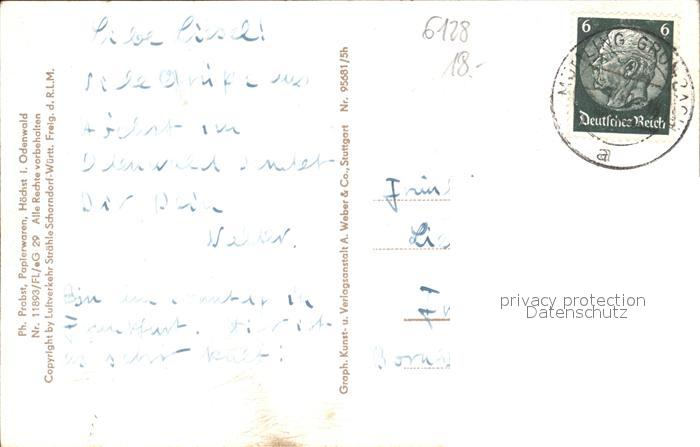 Liebe Liesel!
viele Grüße aus
Höchst im
Odenwald sendet
Dir Dein
Bin im
Frankfurt. Hier ist
es sehr kalt!
6128
18.-
6 6
Deutsches Reich
MÜMLING-GRUMBACH
a
Fräul
Lie
privacy protection
Datenschutz
Ph. Probst, Papierwaren, Höchst i. Odenwald
Nr. 11893/FL/eG 29 Alle Rechte vorbehalten
Copyright by Luftverkehr Strähle Schorndorf-Württ. Freig. d. R.L.M.
Graph. Kunst- u. Verlagsanstalt A. Weber & Co., Stuttgart Nr. 95681/5h